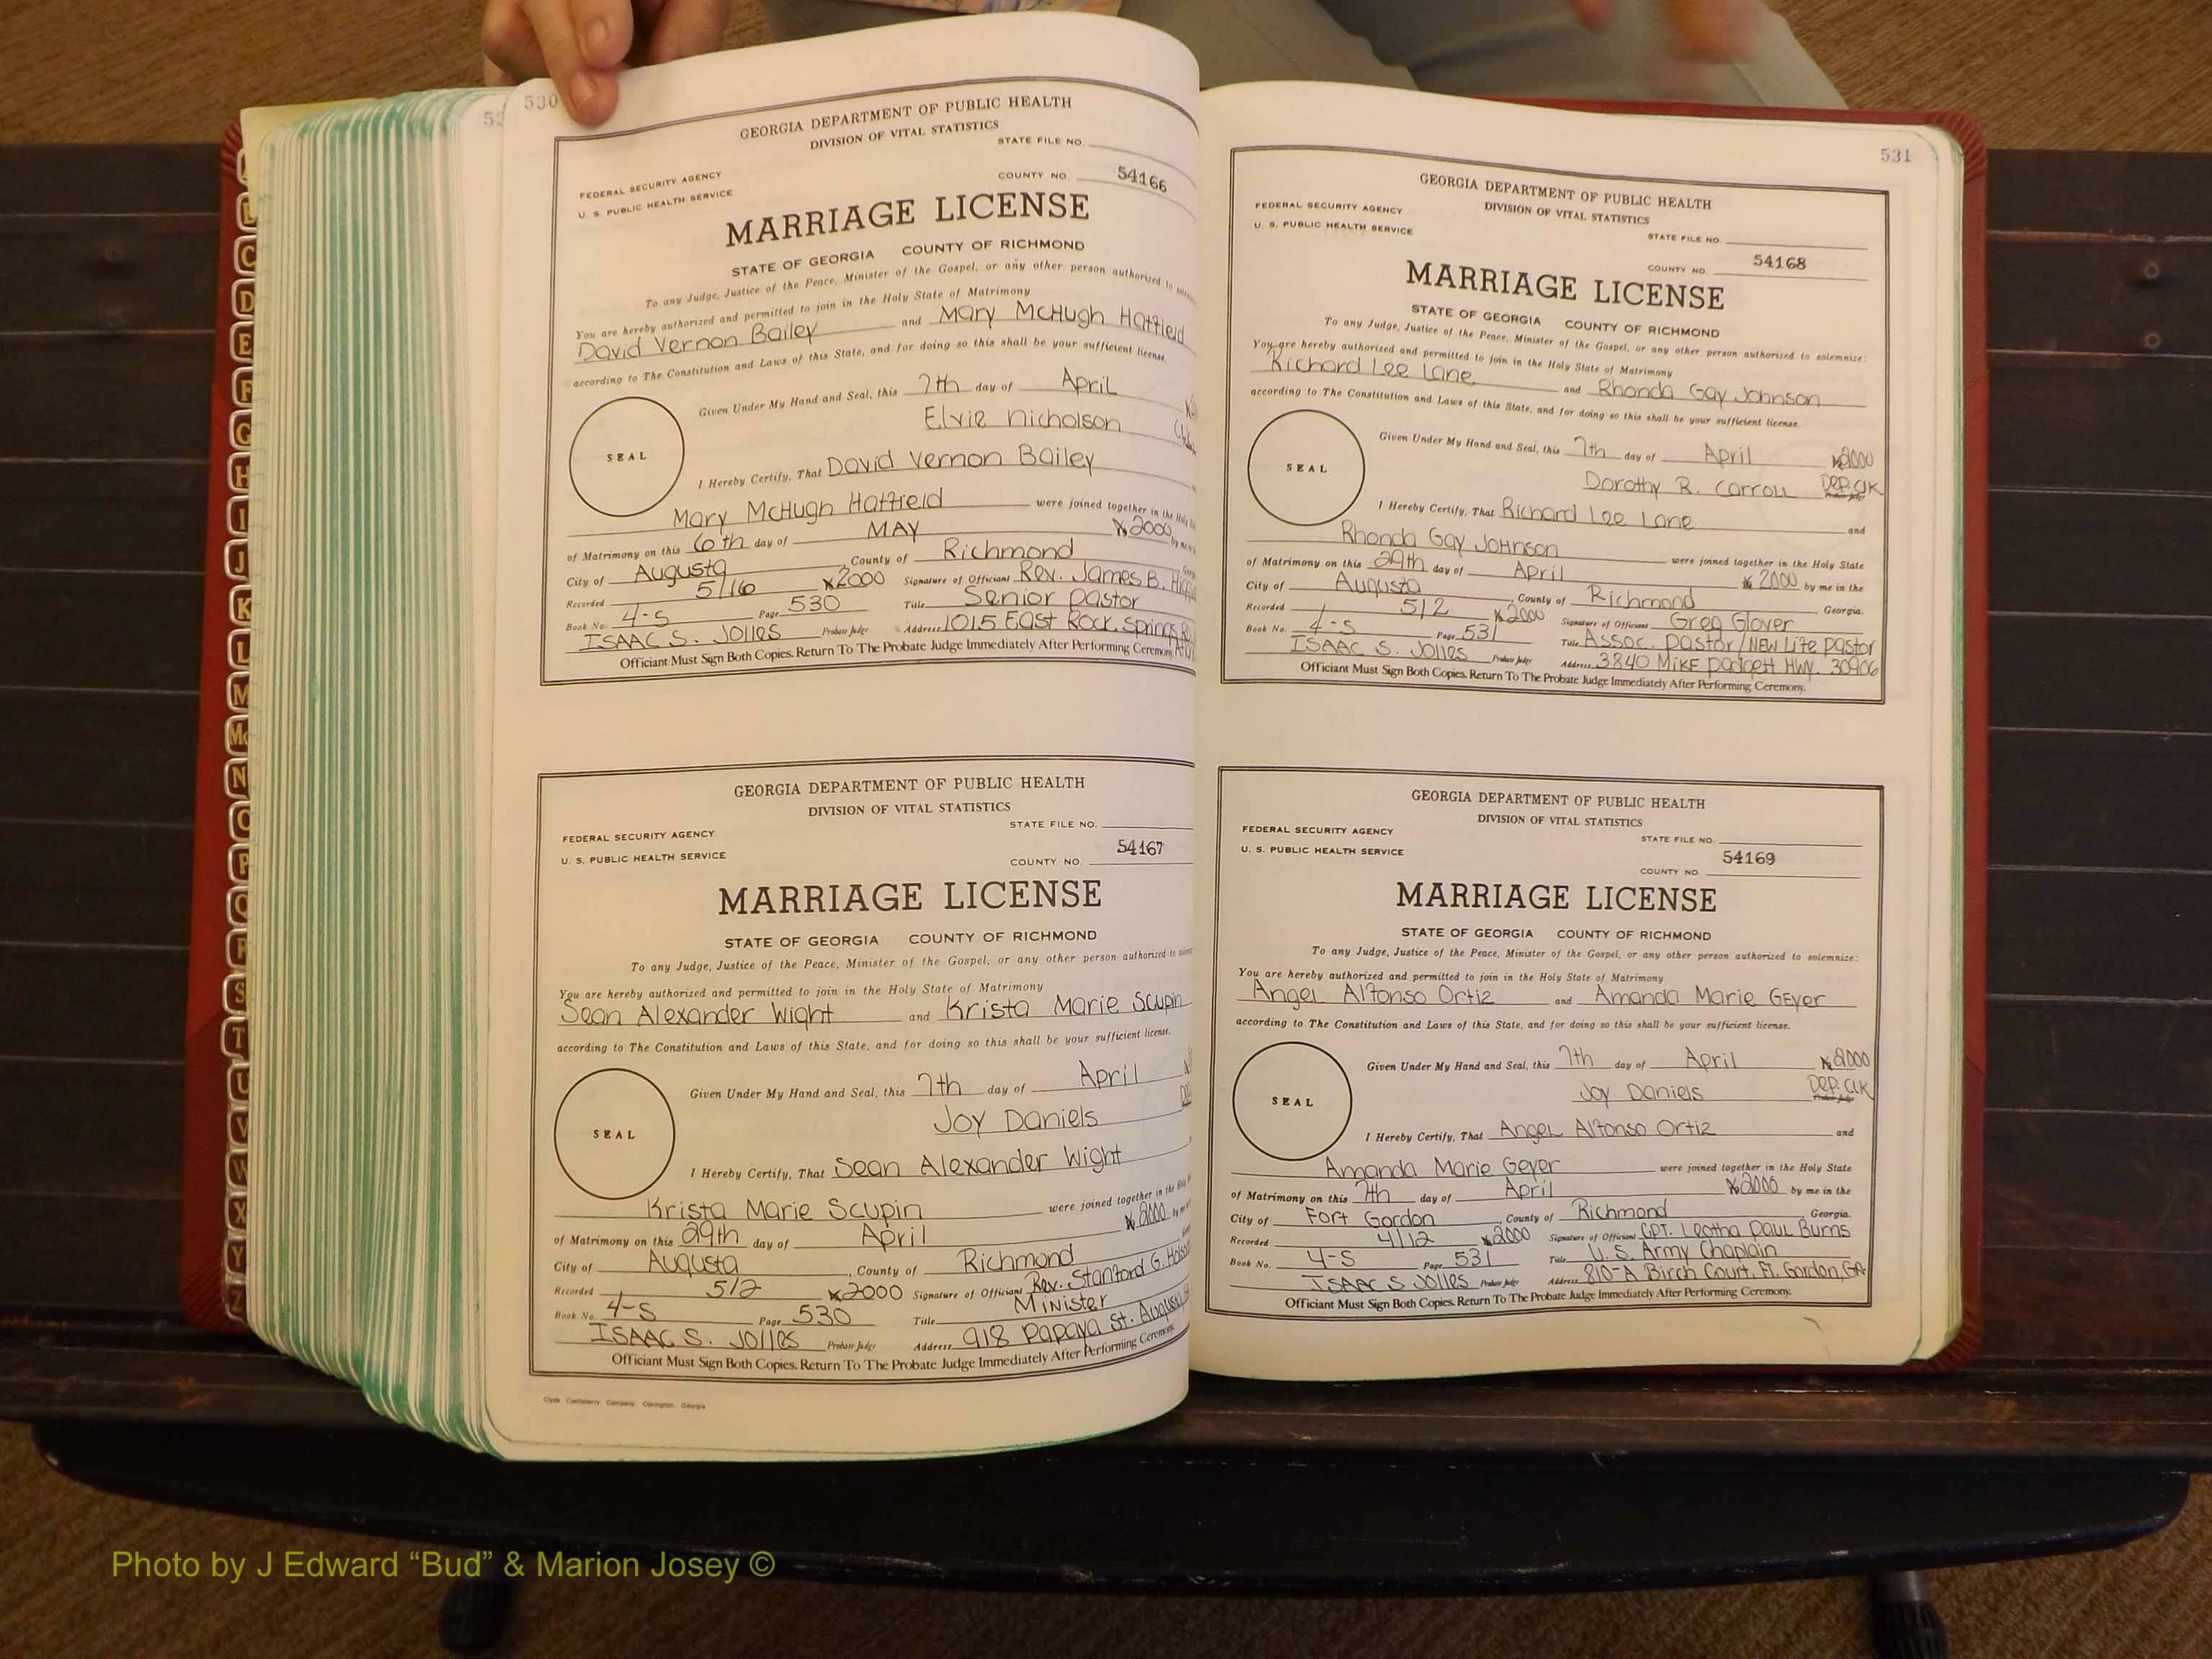 530
GEORGIA DEPARTMENT OF PUBLIC HEALTH
DIVISION OF VITAL STATISTICS
STATE FILE NO.
FEDERAL SECURITY AGENCY
U. S. PUBLIC HEALTH SERVICE
COUNTY NO. 54166
MARRIAGE LICENSE
STATE OF GEORGIA COUNTY OF RICHMOND
To any Judge, Justice of the Peace, Minister of the Gospel, or any other person authorized to
You are hereby authorized and permitted to join in the Holy State of Matrimony
David Vernon Bailey and Mary McHugh Hatfield
according to The Constitution and Laws of this State, and for doing so this shall be your sufficient license.
Given Under My Hand and Seal, this 7th day of April
Elvie Nicholson
SEAL
I Hereby Certify, That David Vernon Bailey
Mary McHugh Hatfield were joined together in the
of Matrimony on this 6th day of MAY 2000
City of Augusta, County of Richmond
Recorded 5/16 2000 Signature of Officiant Rev. James B.
Book No. 4-S Page 530 Title Senior Pastor
ISAAC S. Jolles Probate Judge Address 1015 East Rock Springs
Officiant Must Sign Both Copies. Return To The Probate Judge Immediately After Performing Ceremony.
GEORGIA DEPARTMENT OF PUBLIC HEALTH
DIVISION OF VITAL STATISTICS
STATE FILE NO.
FEDERAL SECURITY AGENCY
U. S. PUBLIC HEALTH SERVICE
COUNTY NO. 54167
MARRIAGE LICENSE
STATE OF GEORGIA COUNTY OF RICHMOND
To any Judge, Justice of the Peace, Minister of the Gospel, or any other person authorized to
You are hereby authorized and permitted to join in the Holy State of Matrimony
Sean Alexander Wight and Krista Marie Scupin
according to The Constitution and Laws of this State, and for doing so this shall be your sufficient license.
Given Under My Hand and Seal, this 7th day of April
Joy Daniels
SEAL
I Hereby Certify, That Sean Alexander Wight
Krista Marie Scupin were joined together in the
of Matrimony on this 29th day of April 2000
City of Augusta, County of Richmond
Recorded 5/2 2000 Signature of Officiant Rev. Stanford G.
Book No. 4-S Page 530 Title Minister
ISAAC S. Jolles Probate Judge Address 918 Papaya St. Augusta
Officiant Must Sign Both Copies. Return To The Probate Judge Immediately After Performing Ceremony.
Clyde Castleberry Company, Covington, Georgia
531
GEORGIA DEPARTMENT OF PUBLIC HEALTH
DIVISION OF VITAL STATISTICS
FEDERAL SECURITY AGENCY
U. S. PUBLIC HEALTH SERVICE
STATE FILE NO.
COUNTY NO. 54168
MARRIAGE LICENSE
STATE OF GEORGIA COUNTY OF RICHMOND
To any Judge, Justice of the Peace, Minister of the Gospel, or any other person authorized to solemnize:
You are hereby authorized and permitted to join in the Holy State of Matrimony
Richard Lee Lane and Rhonda Gay Johnson
according to The Constitution and Laws of this State, and for doing so this shall be your sufficient license.
Given Under My Hand and Seal, this 7th day of April 2000
Dorothy R. Carroll Dep. Clk
SEAL
I Hereby Certify, That Richard Lee Lane and
Rhonda Gay Johnson were joined together in the Holy State
of Matrimony on this 29th day of April 2000 by me in the
City of Augusta, County of Richmond, Georgia.
Recorded 5/2 2000 Signature of Officiant Greg Glover
Book No. 4-S Page 531 Title Assoc. Pastor/New Life Pastor
ISAAC S. Jolles Probate Judge Address 3840 Mike Padgett Hwy. 30906
Officiant Must Sign Both Copies. Return To The Probate Judge Immediately After Performing Ceremony.
GEORGIA DEPARTMENT OF PUBLIC HEALTH
DIVISION OF VITAL STATISTICS
FEDERAL SECURITY AGENCY
U. S. PUBLIC HEALTH SERVICE
STATE FILE NO.
COUNTY NO. 54169
MARRIAGE LICENSE
STATE OF GEORGIA COUNTY OF RICHMOND
To any Judge, Justice of the Peace, Minister of the Gospel, or any other person authorized to solemnize:
You are hereby authorized and permitted to join in the Holy State of Matrimony
Angel Alfonso Ortiz and Amanda Marie Geyer
according to The Constitution and Laws of this State, and for doing so this shall be your sufficient license.
Given Under My Hand and Seal, this 7th day of April 2000
Joy Daniels Dep. Clk
SEAL
I Hereby Certify, That Angel Alfonso Ortiz and
Amanda Marie Geyer were joined together in the Holy State
of Matrimony on this 7th day of April 2000 by me in the
City of Fort Gordon, County of Richmond Georgia.
Recorded 4/12 2000 Signature of Officiant CPT. Leotha Paul Burns
Book No. 4-S Page 531 Title U. S. Army Chaplain
ISAAC S Jolles Probate Judge Address 810-A Birch Court, Ft. Gordon, GA
Officiant Must Sign Both Copies. Return To The Probate Judge Immediately After Performing Ceremony.
C
D
E
F
G
H
I
J
K
L
M
Mc
N
O
P
Q
R
S
T
U
V
W
X
Y
Z
Photo by J Edward “Bud” & Marion Josey ©